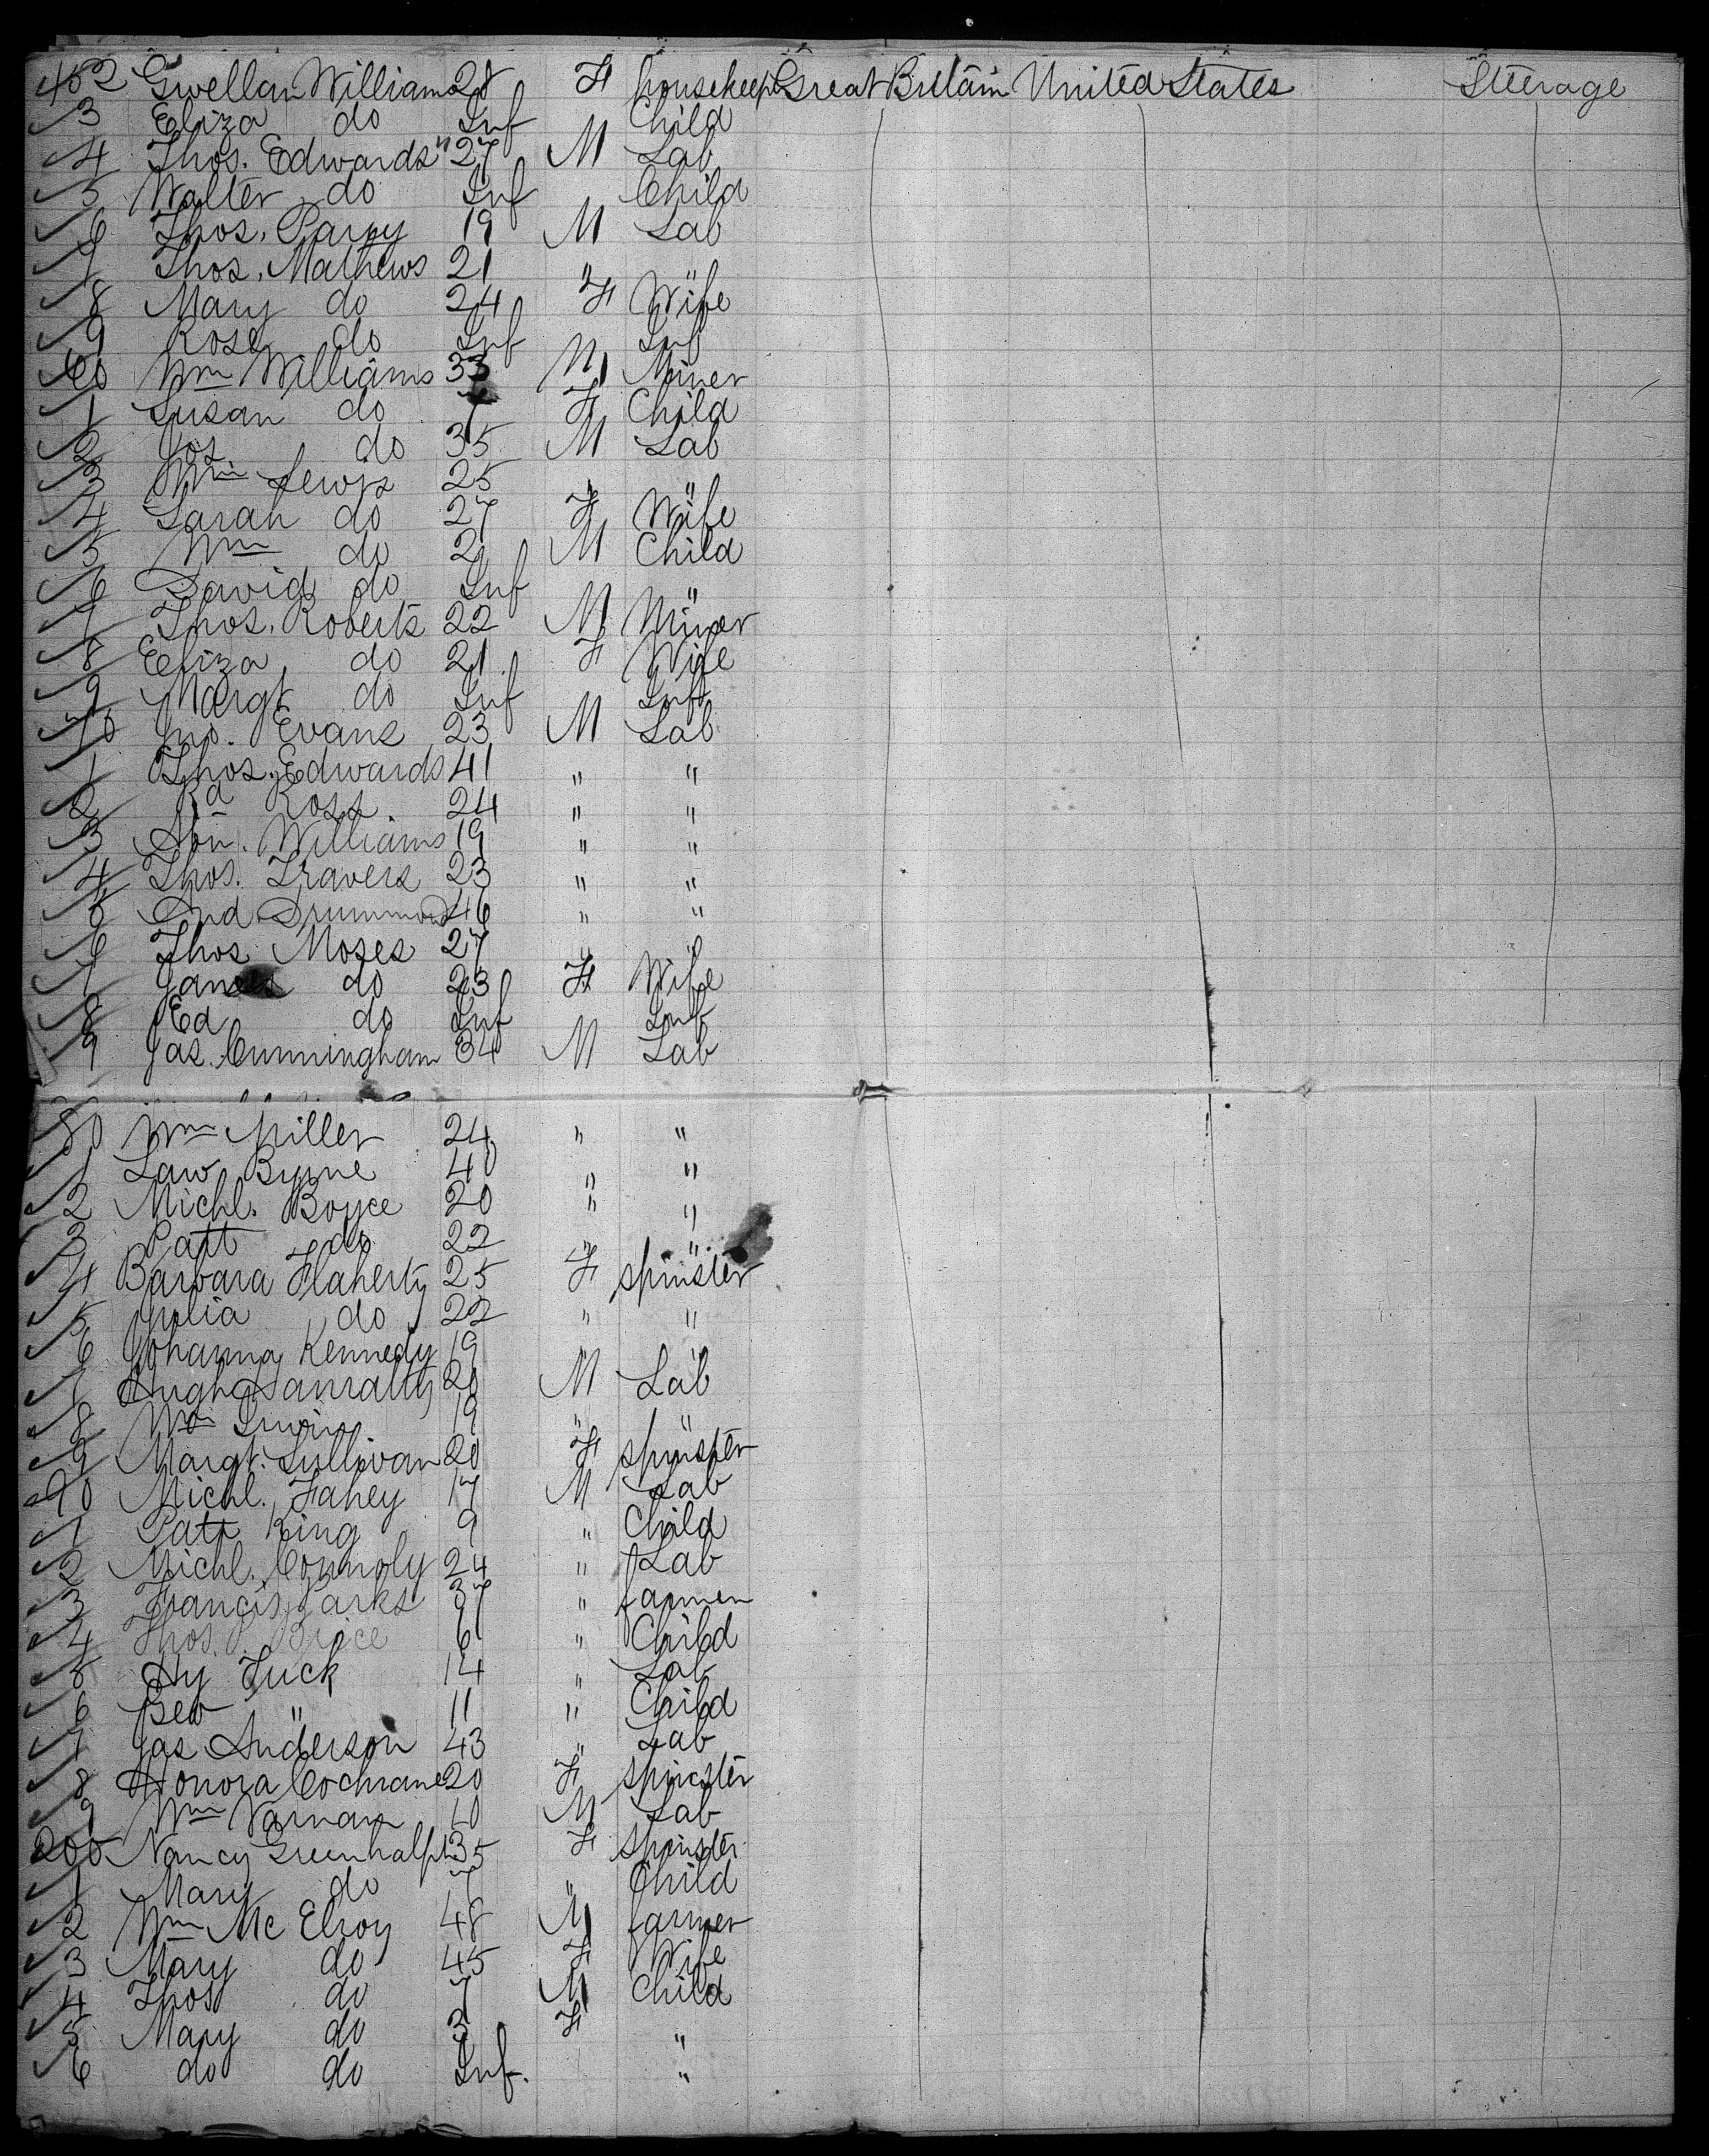 152 Gwellan Williams 28 F housekeep Great Britain United States Steerage
3 Eliza do Inf Child
4 Thos. Edwards 27 M Lab
5 Walter do Inf Child
6 Thos. Parry 19 M Lab
7 Thos. Mathews 21 " "
8 Mary do 24 F Wife
9 Rose do Inf Inf
60 Wm Williams 33 M Miner
1 Susan do 7 F Child
2 Jos do 35 M Lab
3 Wm Lewis 25 " "
4 Sarah do 27 F Wife
5 Wm do 2 M Child
6 David do Inf "
7 Thos. Roberts 22 M Miner
8 Eliza do 21 F Wife
9 Margt do Inf Inft
70 Jno. Evans 23 M Lab
1 Thos. Edwards 41 " "
2 Rd Ross 24 " "
3 Williams 19 " "
4 Thos. Travers 23 " "
5 Drummond 46 " "
6 Thos Moses 27 " "
7 Jane do 23 F Wife
8 Ed do Inf Inf
9 Jas. Cunningham 34 M Lab
80 Wm Miller 24 " "
1 Law Byrne 40 " "
2 Michl. Boyce 20 " "
3 Patt do 22 " "
4 Barbara Flaherty 25 F spinster
5 Julia do 22 " "
6 Johanna Kennedy 19 " "
7 Hugh 20 M Lab
8 Wm Irwin 19 " "
9 Margt. Sullivan 20 F spinster
90 Michl. Fahey 17 M Lab
1 Patt King 9 " Child
2 Michl. Connoly 24 " Lab
3 Francis Parks 37 " farmer
4 Thos. Brice 6 " Child
5 Hy Tuck 14 " Lab
6 Geo " 11 " Child
7 Jas Anderson 43 " Lab
8 Honora Cochrane 20 F spinster
9 Wm 10 M Lab
200 Nancy Greenhalph 35 F spinster
1 Mary do 7 " Child
2 Wm Mc Elroy 48 M farmer
3 Mary do 45 F Wife
4 Thos do 7 M Child
5 Mary do 3 F "
6 do do Inf. "